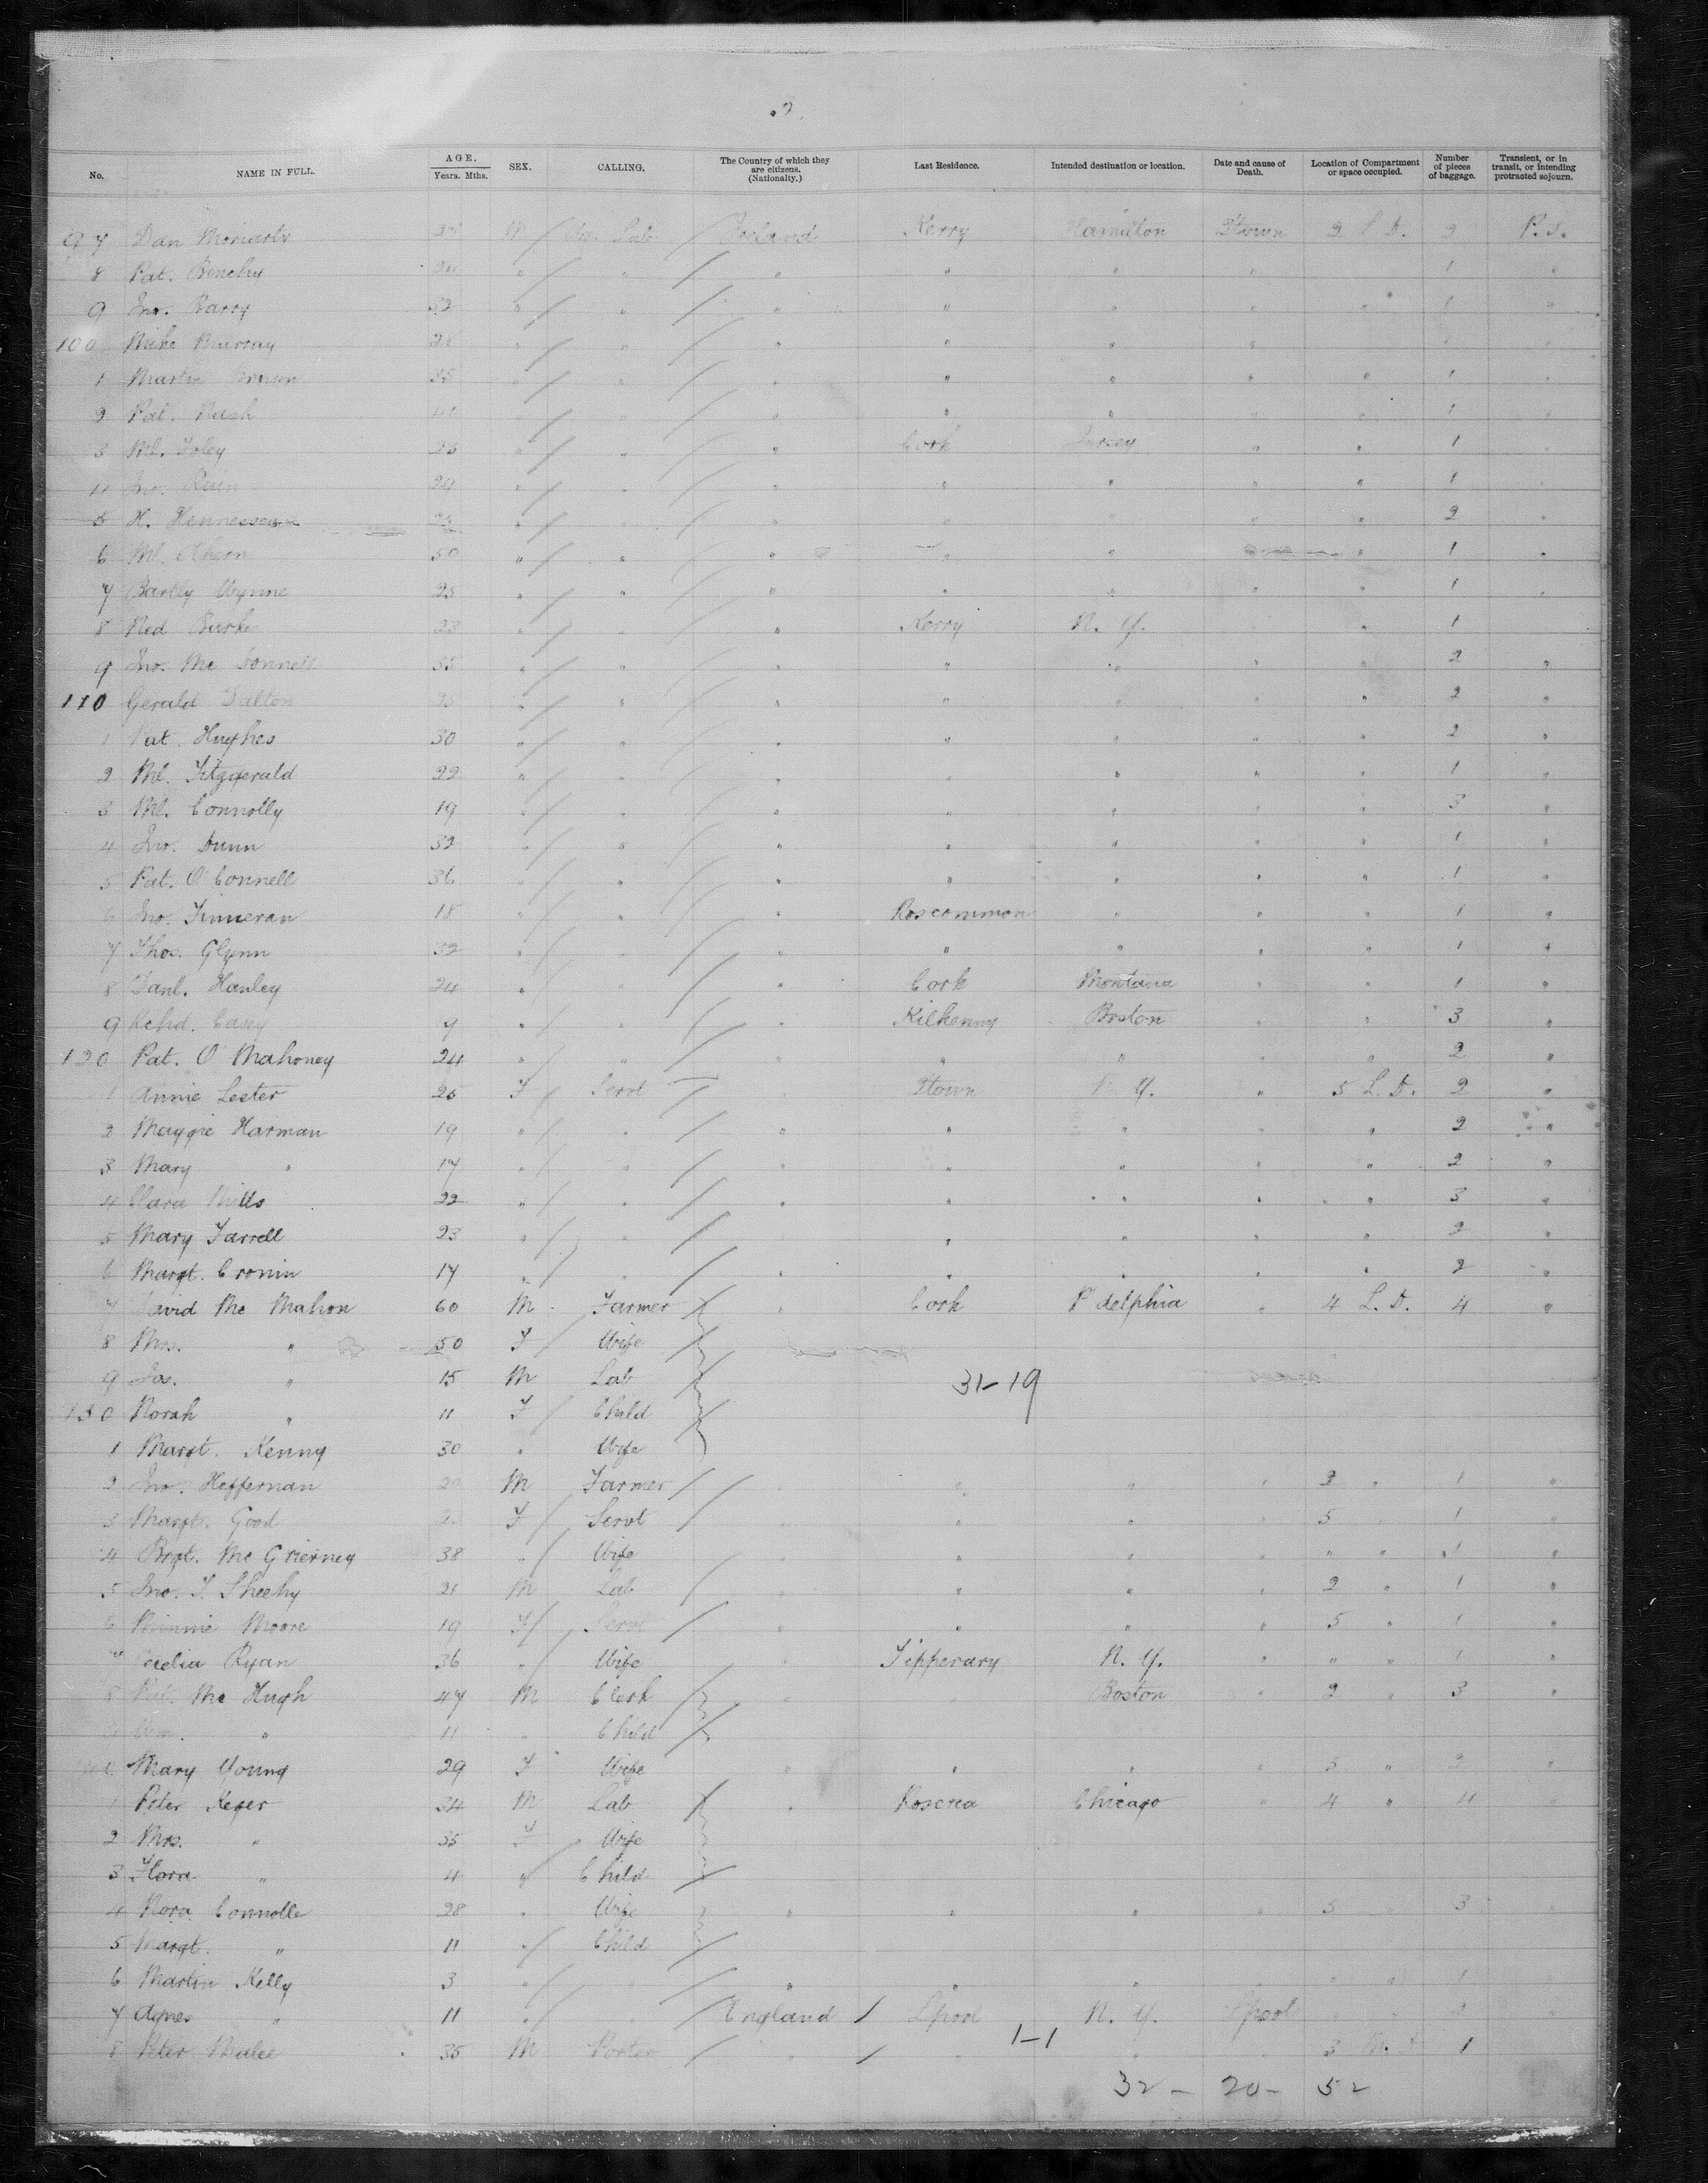 2.
No. NAME IN FULL. AGE. Years. Mths. SEX. CALLING. The Country of which they are citizens. (Nationalty.) Last Residence. Intended destination or location. Date and cause of Death. Location of Compartment or space occupied. Number of pieces of baggage. Transient, or in transit, or intending protracted sojourn.
97 Dan Moriarty M Lab Ireland Kerry Hamilton Qtown 2 L D. 2 P. S.
8 Pat. " " " " " " 1 "
9 Jno. Barry 32 " " " " " " " 1 "
100 Mike Murray " " " " " "
1 Martin Brown 35 " " " " " " " 1 "
2 Pat. Nash 40 " " " " " " " 1 "
3 Ml. Foley 25 " " " Cork Jersey " " 1 "
4 Jno. 29 " " " " " " 1 "
5 H. " " " " " 2 "
6 Ml. Ahern 50 " " " " " " 1 "
7 Bartly Wynne 25 " " " " " " " 1 "
8 Ned Burke 23 " " Kerry N. Y. " 1
9 Jno. Mc Donnell 35 " " " " " " 2 "
110 Gerald Dalton 25 " " " " " 2 "
1 Pat. Hughes 30 " " " " " " " 2 "
2 Ml. Fitzgerald 22 " " " " " " 1 "
3 Ml. Connolly 19 " " " " " " " 3 "
4 Jno. Dunn 32 " " " " " " " 1 "
5 Pat. O'Connell 36 " " " " " " " 1 "
6 Jno. Finneran 18 " " " Roscommon " " " 1 "
7 Thos. Glynn 32 " " " " " " " 1 "
8 Danl. Hanley 24 " " Cork Montana " " 1 "
9 Rchd. Casey 19 " " " Kilkenny Boston " " 3 "
120 Pat. O'Mahoney 24 " " " " " " " 2 "
1 Annie Lester 25 F Servt Qtown N. Y. " 5 L. D. 2 "
2 Maggie Harman 19 " " " " " " " 2 "
3 Mary " 17 " " " " " " " 2 "
4 Clara Mills 22 " " " " " " " 3 "
5 Mary Farrell 23 " " " " " " 2 "
6 Margt. Cronin 17 " " " " " " 2 "
7 David Mc Mahon 60 M Farmer " Cork P'delphia " 4 L. D. 4 "
8 Mrs. " 50 F Wife
9 Jas. " 15 M Lab 31-19
130 Norah " 11 F Child
1 Margt. Kenny 30 " Wife
2 Jno. Heffernan 20 M Farmer " " " 2 " 1 "
3 Margt. Good 23 F Servt " " " 5 " 1 "
4 Brgt. Mc Grierney 38 " Wife " " " " " " 1 "
5 Jno. F. Sheehy 21 M Lab " " " " 2 " 1 "
6 Minnie Moore 19 F Servt " " " " 5 " 1 "
7 Ryan 36 " Wife " Tipperary N. Y. " " " 1 "
8 Pat. Mc Hugh 47 M Clerk " Boston " 2 " 3 "
9 Wm. " 11 " Child
140 Mary Young 29 F Wife " " " " 5 " 2 "
1 Peter Keger 34 M Lab " Roscrea Chicago " 4 " 4 "
2 Mrs. " 35 F Wife
3 Flora " 4 " Child
4 Nora Connolle 28 " Wife " " " " 5 " 3 "
5 Margt. " 11 " Child
6 Martin Kelly 3 " " " " " " 1
7 Agnes " 11 " England Lpool N. Y. Lpool
1-1
8 Peter Malee 35 M Porter " " 3 1
32 - 20 - 52